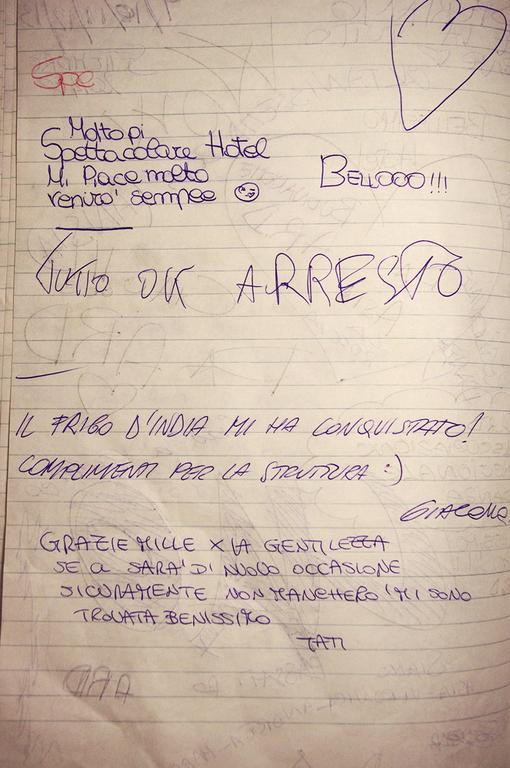 Spe
Molto pi
Spettacolare Hotel
Mi Piace molto
verirò sempre
BELLOOO!!!
TUTTO OK ARRESTO
IL FRIGO D'INDIA MI HA CONQUISTATO!
COMPLIMENTI PER LA STRUTTURA :)
GIACOMO
GRAZIE MILLE X LA GENTILEZZA
SE CI SARA' DI NUOVO OCCASIONE
SICURAMENTE NON MANCHERO' MI SONO
TROVATA BENISSIMO
TATI